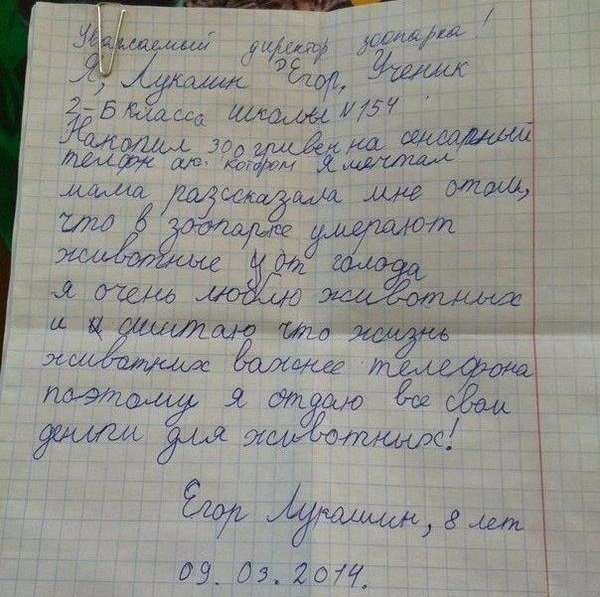 Уважаемый директор зоопарка!
Я, Лукашин Егор, Ученик
2-Б класса школы №154
Накопил 300 гривен на сенсарный
телфон ою котором я мечтал
мама разссказала мне отом,
что в зоопарке умерают
животные от голода
я очень люблю животных
и считаю что жизнь
животних важнее телефона
поэтому я отдаю все свои
деньги для животных!
Егор Лукашин, 8 лет
09.03.2014.